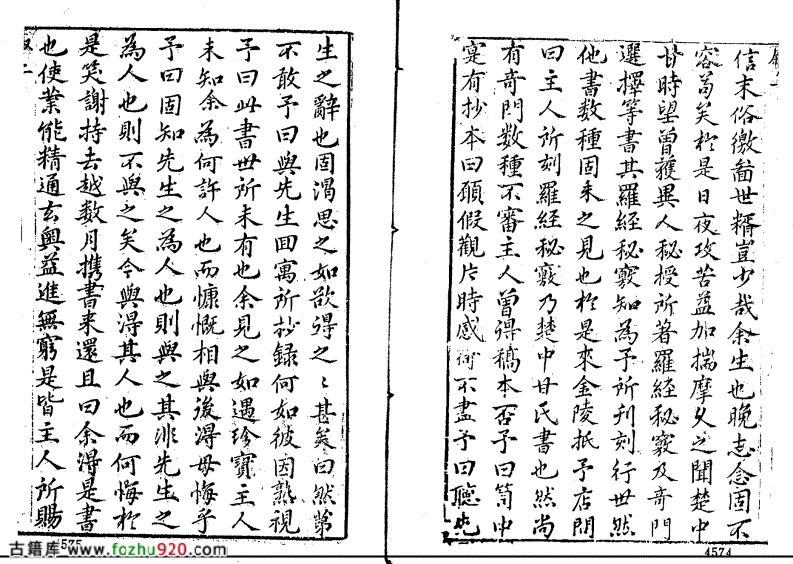 信末俗徼畐世糈豈少哉余生也晚志念固不
容苟矣於是日夜攻苦益加揣摩久之聞楚中
甘時望曾獲異人秘授所著羅經秘竅及奇門
選擇等書其羅經秘竅知為予所刊刻行世然
他書数種固未之見也於是來金陵抵予店問
曰主人所刻羅經秘竅乃楚中甘氏書也然尚
有奇門数種不審主人曾得稿本否予曰笥中
寔有抄本曰願假觀片時感衘不盡予曰聽先
生之辭也固渴思之如欲得之〻甚矣曰然第
不敢予曰與先生回寓所抄録何如彼因熟視
予曰此書世所未有也余見之如遇珍寶主人
未知余為何許人也而慷慨相與後淂毋悔乎
予曰固知先生之為人也則與之其非先生之
為人也則不與之矣今與淂其人也而何悔於
是笑謝持去越数月携書来還且曰余淂是書
也使業能精通玄奧益進無窮是皆主人所賜
4574
4575
古籍库 www.fozhu920.com